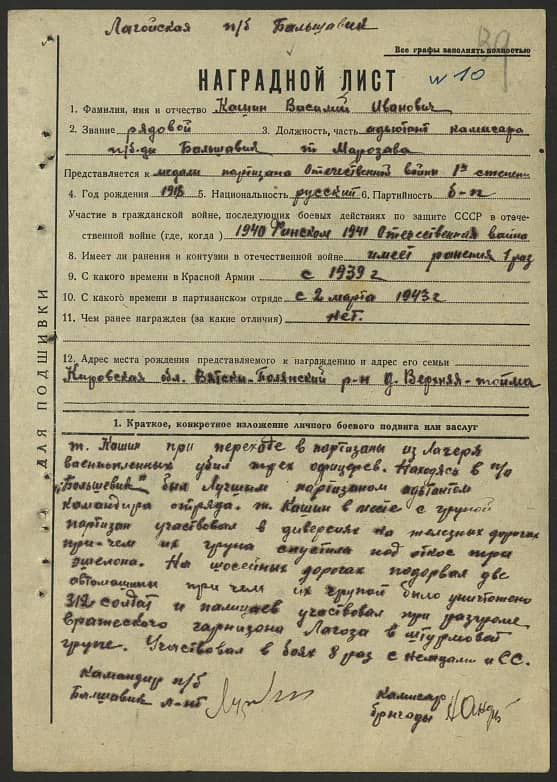 Лагойская п/б Балшавик
39
Все графы заполнять полностью
НАГРАДНОЙ ЛИСТ
N 10
1. Фамилия, имя и отчество Кашин Василий Иванович
2. Звание рядовой 3. Должность, часть адьютант камисара
п/б-ды Балшавик т Марозава
Представляется к медали партизана Отечественой войны 1й степени
4. Год рождения 1918 5. Национальность русский 6. Партийность б-п
Участие в гражданской войне, последующих боевых действиях по защите СССР в отече-
ственной войне (где, когда) 1940 Финском 1941 Отечественная вайна
8. Имеет ли ранения и контузии в отечественной войне имеет ранения 1 раз
9. С какого времени в Красной Армии с 1939 г
10. С какого времени в партизанском отряде с 2 марта 1943 г
11. Чем ранее награжден (за какие отличия) нет.
12. Адрес места рождения представляемого к награждению и адрес его семьи
Кировская обл. Вятски-Полянский р-н д. Верхняя-тойма
ДЛЯ ПОДШИВКИ
1. Краткое, конкретное изложение личного боевого подвига или заслуг
т. Кашин при переходе в партизаны из Лагеря
ваеннопленных убил трех офицеров. Находясь в п/о
"Большевик" был Лучшым партизаном адьтантом
командира отряда. т. Кашин в месте с групой
партизан участвовал в диверсиях на железных дорогах
при-чем их група спустила под откос три
эшелона. На шосейных дорогах подорвал две
автомашины при чем их групой было уничтожено
312 солдат и палицаев участвовал при разгроме
вражеского гарнизона Лагоза в штурмовой
групе. Участвовал в боях 8 раз с немцами и СС.
Камандир п/б
Балшавик л-нт
Камисар
бригады